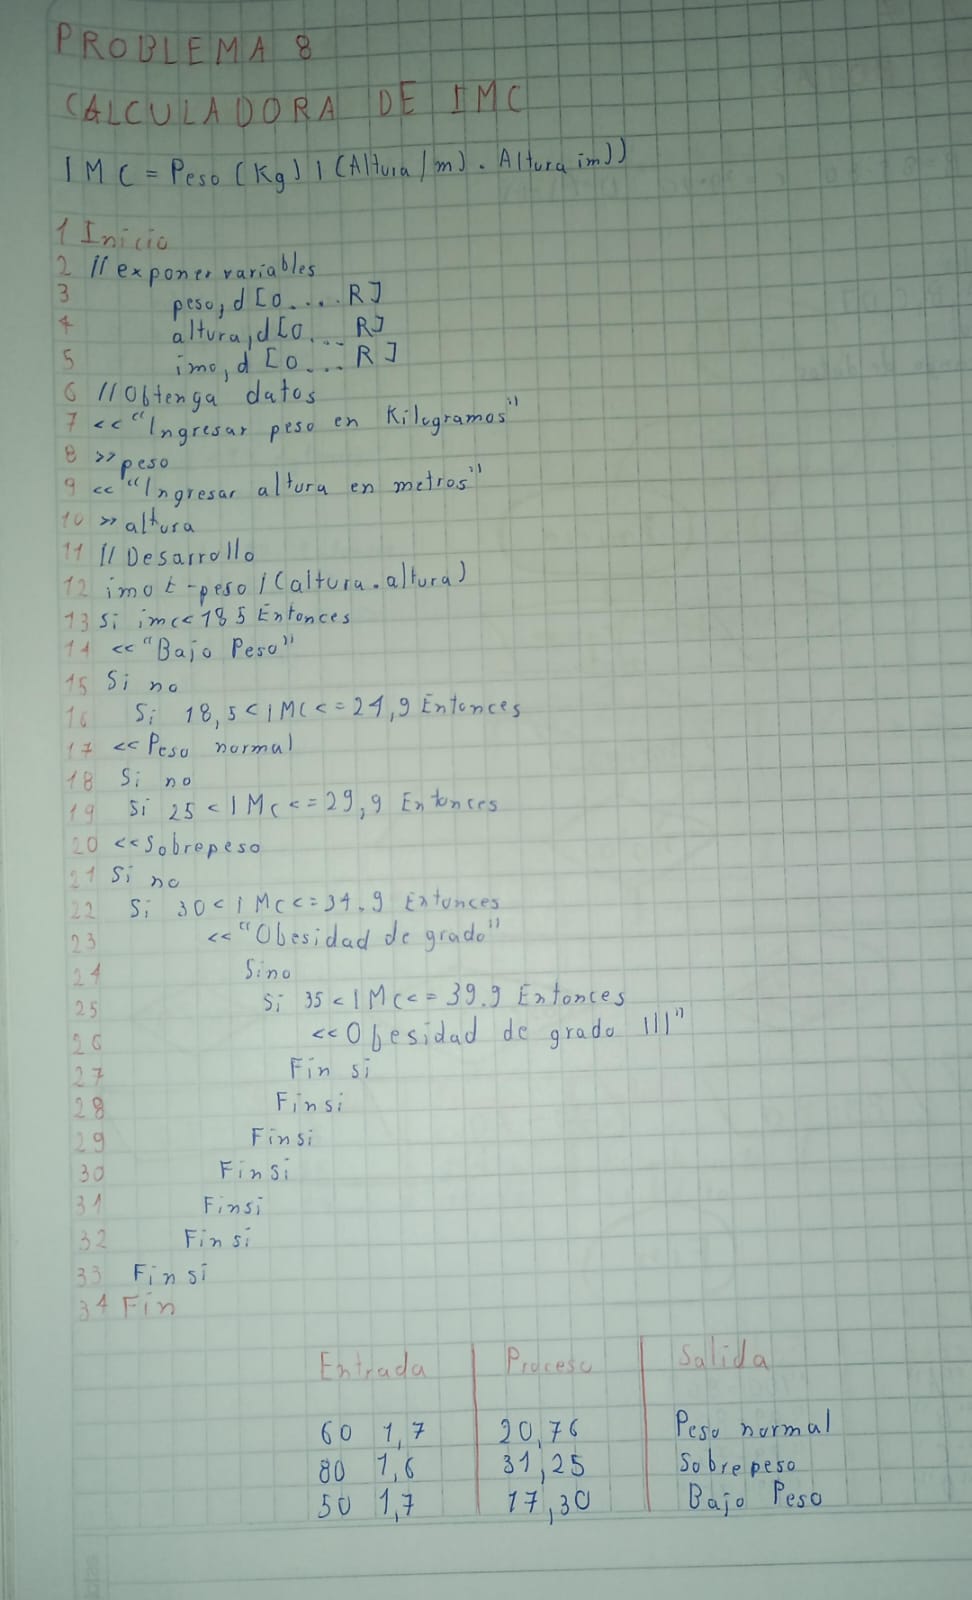 PROBLEMA 8
CALCULADORA DE IMC
IMC = Peso (Kg) / (Altura/m) . Altura im))
1 Inicio
2 // exponer variables
3 peso, d [0.... R]
4 altura, d [0... R]
5 imo, d [0... R]
6 // Obtenga datos
7 << "Ingresar peso en Kilogramos"
8 >> peso
9 << "Ingresar altura en metros"
10 >> altura
11 // Desarrollo
12 imo t -peso / (altura.altura)
13 Si imc< 18 5 Entonces
14 << "Bajo Peso"
15 Si no
16 Si 18,5 < IMC <= 24,9 Entonces
17 << Peso normal
18 Si no
19 Si 25 < IMC <= 29,9 Entonces
20 << Sobrepeso
21 Si no
22 Si 30 < IMC <= 34.9 Entonces
23 << "Obesidad de grado"
24 Sino
25 Si 35 < IMC <= 39.9 Entonces
26 << Obesidad de grado III"
27 Fin si
28 Finsi
29 Finsi
30 Finsi
31 Finsi
32 Finsi
33 Finsi
34 Fin
Entrada Proceso Salida
60 1,7 20,76 Peso normal
80 1,6 31,25 Sobrepeso
50 1,7 17,30 Bajo Peso